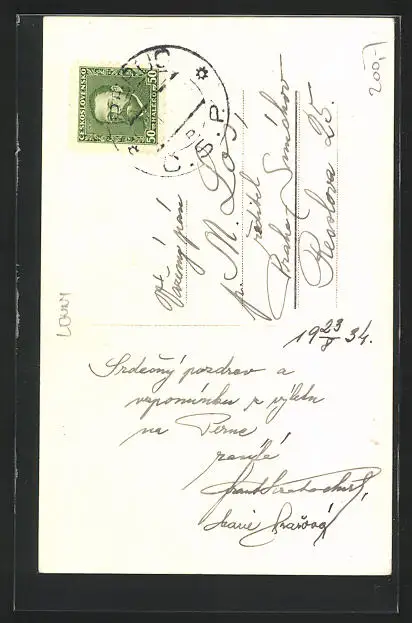 ČESKOSLOVENSKO
50 HALÉŘŮ 50
Č.S.P.
200,-
LOUNY
Vážený pán
p. M. Los
ředitel
Praha Smíchov
Resslova 25.
19 23/8 34.
Srdečný pozdrav a
vzpomínku z výletu
na Peruc
zasílá
Marie